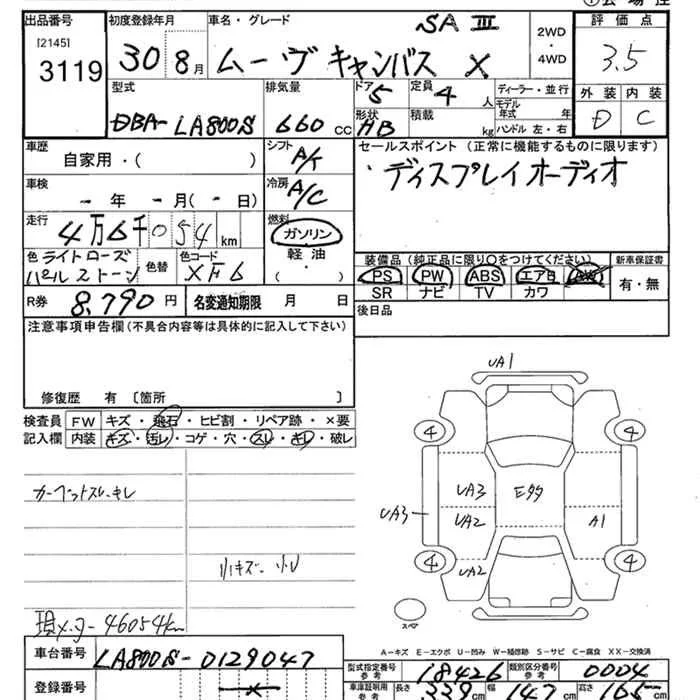 出品番号 初度登録年月 車名・グレード SAⅢ 2WD・4WD 評価点
[2145] 3119 30 8月 ムーヴキャンバス X 3.5
型式 排気量 ドア 5 定員 4 人 ディーラー・並行 外装 内装
DBA- LA800S 660 cc 形状 HB 積載 kg モデル年式 年 ハンドル 左・右 D C
車歴 自家用・( ) シフト A/ セールスポイント (正常に機能するものに限ります)
車検 - 年 - 月(- 日) 冷房 A/C ディスプレイオーディオ
走行 4万6千054km 燃料 ガソリン 軽油・( )
色 ライトローズパールストーン 色替 色コード XF6 装備品 (純正品に限り○をつけてください) 新車保証書
PS PW ABS エアB 有・無
SR ナビ TV カワ
R券 8,790円 名変通知期限 月 日 後日品
注意事項申告欄(不具合内容等は具体的に記入して下さい)
修復歴 有 〔箇所 〕
検査員 FW キズ・飛石・ヒビ割・リペア跡・×要
記入欄 内装 キズ・汚レ・コゲ・穴・スレ・キレ・破レ
カーペットスレ・キレ
小キズ・小U
現メーター46054km
UA1
4 4
UA3 Eタタ
UA3 UA2 A1
4 UA2 4
スペア
A-キズ E-エクボ U-凹み W-補修跡 S-サビ C-腐食 XX-交換済
車台番号 LA800S-0129047
型式指定番号 参考 18426 類別区分番号 参考 0004
登録番号 車庫証明用 参考 長さ 339cm 幅 147cm 高さ 165cm